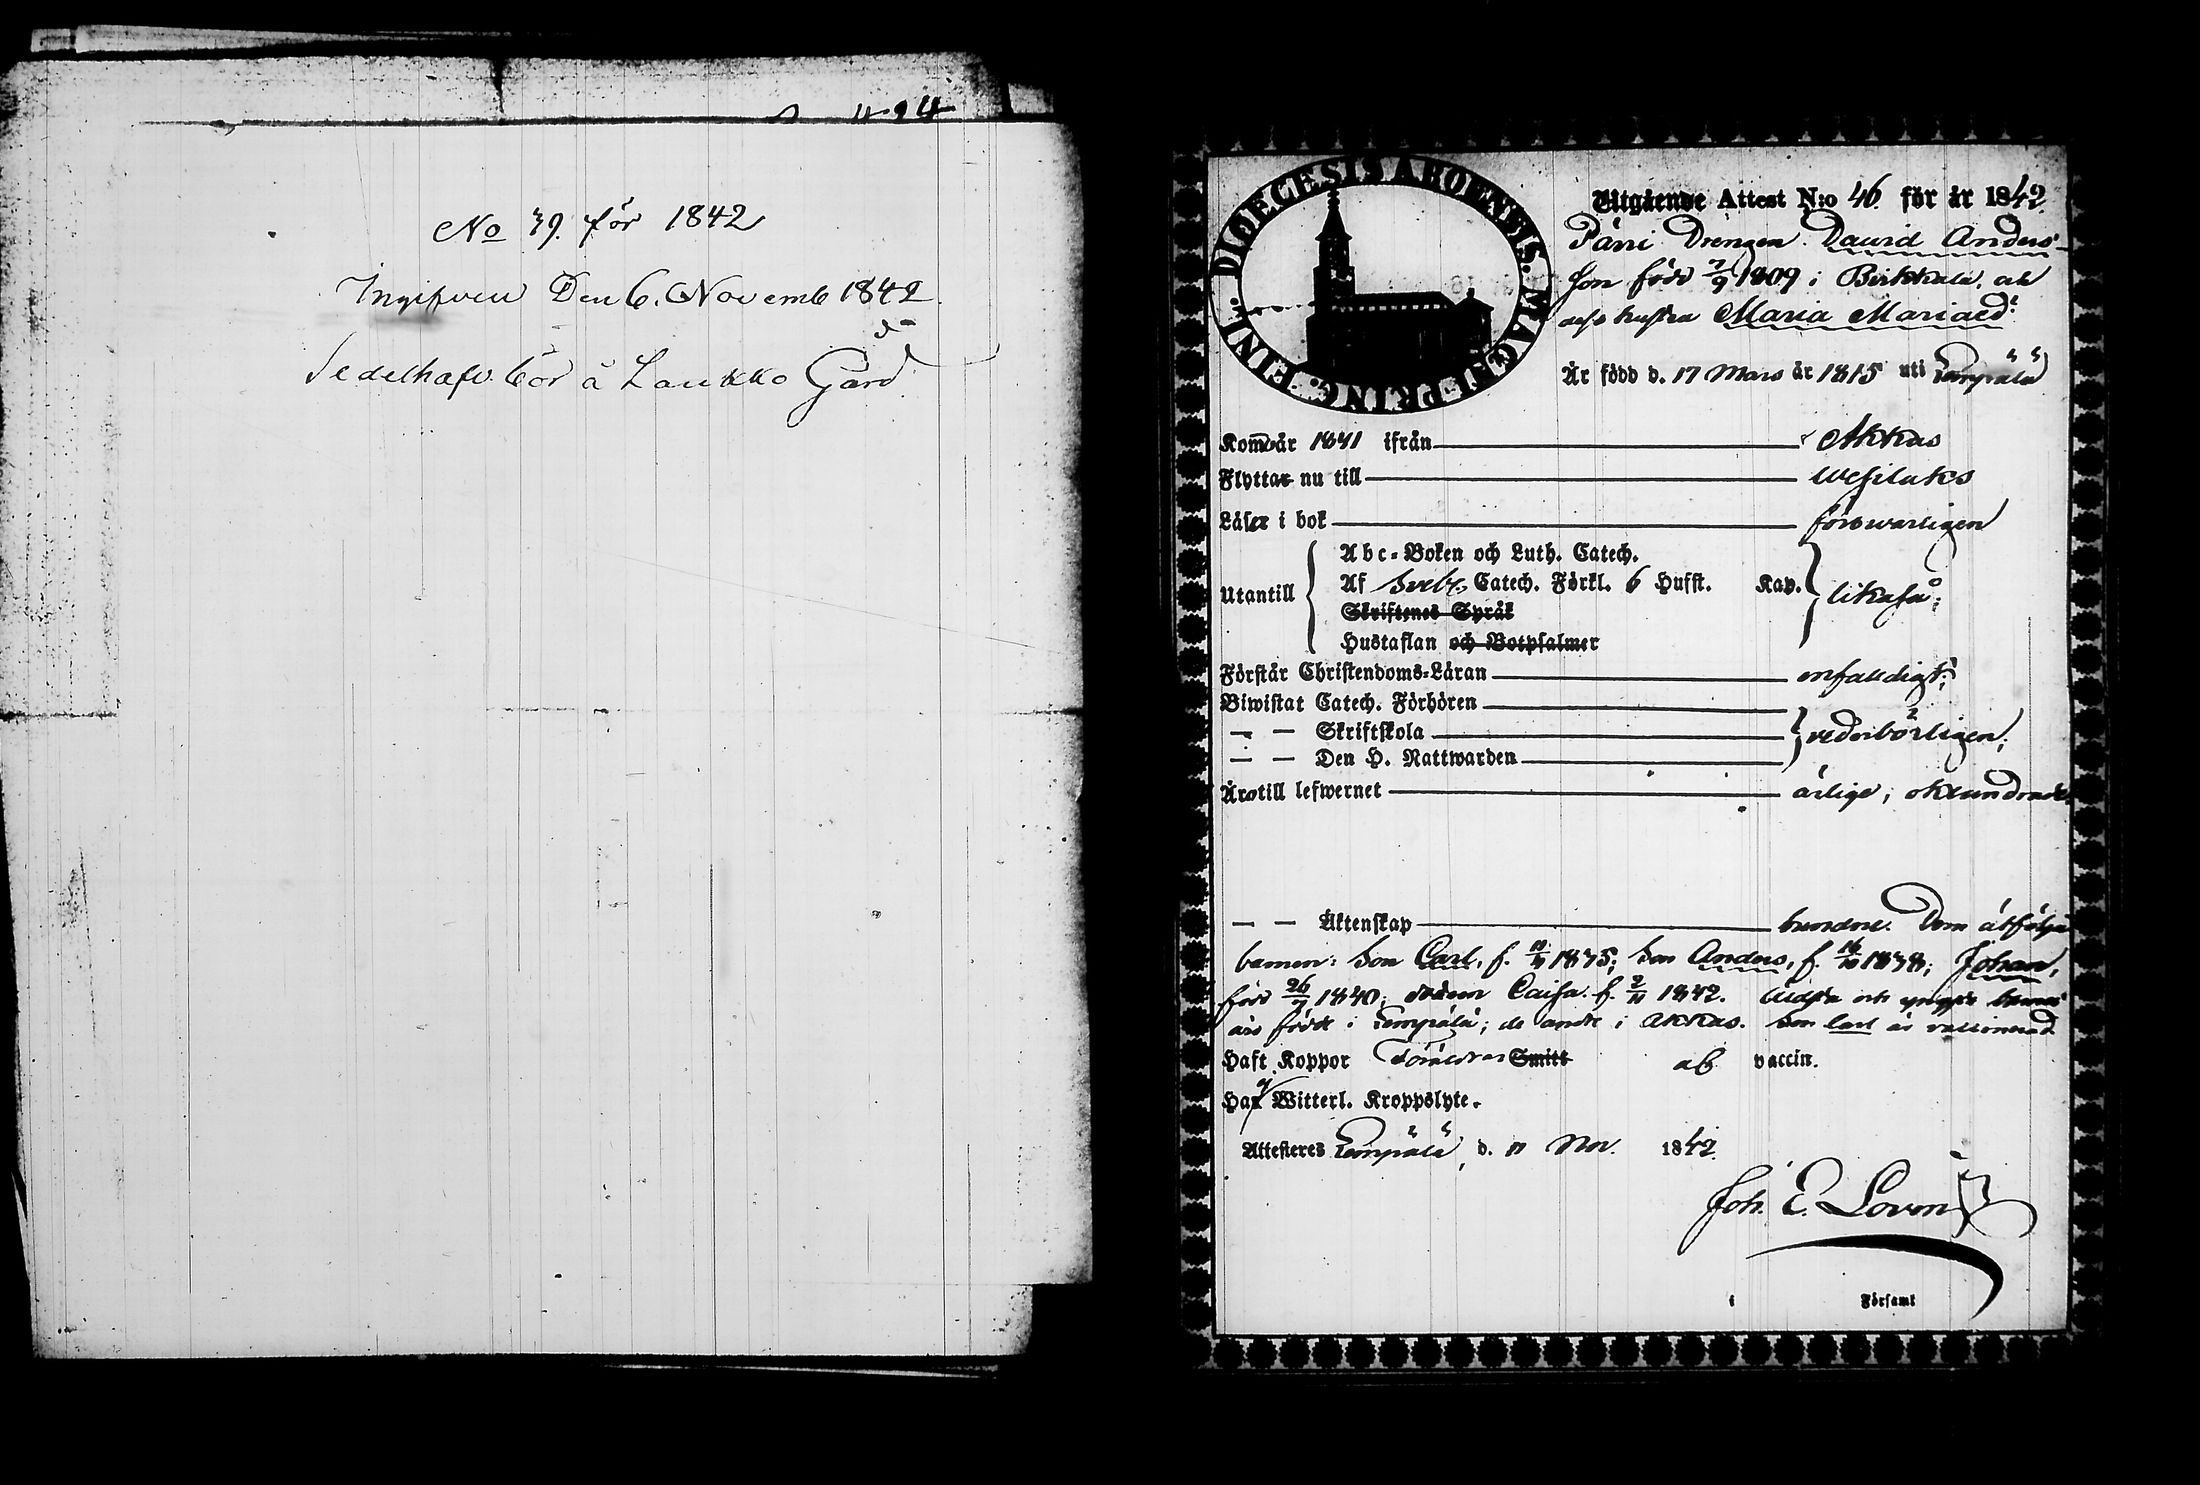 No 39. för 1842
Ingifven Den 6. Novemb 1842
Sedelhafv. bor å Laukko Gård
DIOECESIS ABOENSIS. MAGNI PRINC. FINL.
Utgående Attest N:o 46. för år 1842.
Pärri Drengen Dawid Anders-
son född 7/9 1809 i Birkkala, och
dess hustru Maria Mariaed:r
Är född d. 17 Mars år 1815 uti Lempälä
Kom år 1841 ifrån Akkas
Flyttar nu till Wesilaks
Läser i bok försvarligen
Utantill
Abc-Boken och Luth. Catech.
Af Sveb. Catech. Förkl. 6 Hufst. Kap. likaså;
Skriftenes Språk
Hustaflan och Botpsalmer
Förstår Christendoms-Läran enfaldigt;
Biwistat Catech. Förhören
— — Skriftskola vederbörligen;
— — Den H. Nattwarden
Är till lefwernet ärlige, oklandrade
— — Äktenskap bundne. Dem åtfölja
barnen: Son Carl, f. 1835; Son Anders, f. 1838; Johan,
född 26/7 1840; Caisa f. 2/11 1842. äldsta och yngsta barnet
äro födde i Lempälä; de andre i Akkas. Son Carl är vaccinerad
Haft Koppor Föräldrar Smitt ab vaccin.
Har Witterl. Kroppslyte.
Attesteres Lempälä, d. 11 Nov. 1842.
Joh. E. Loven
i Församl